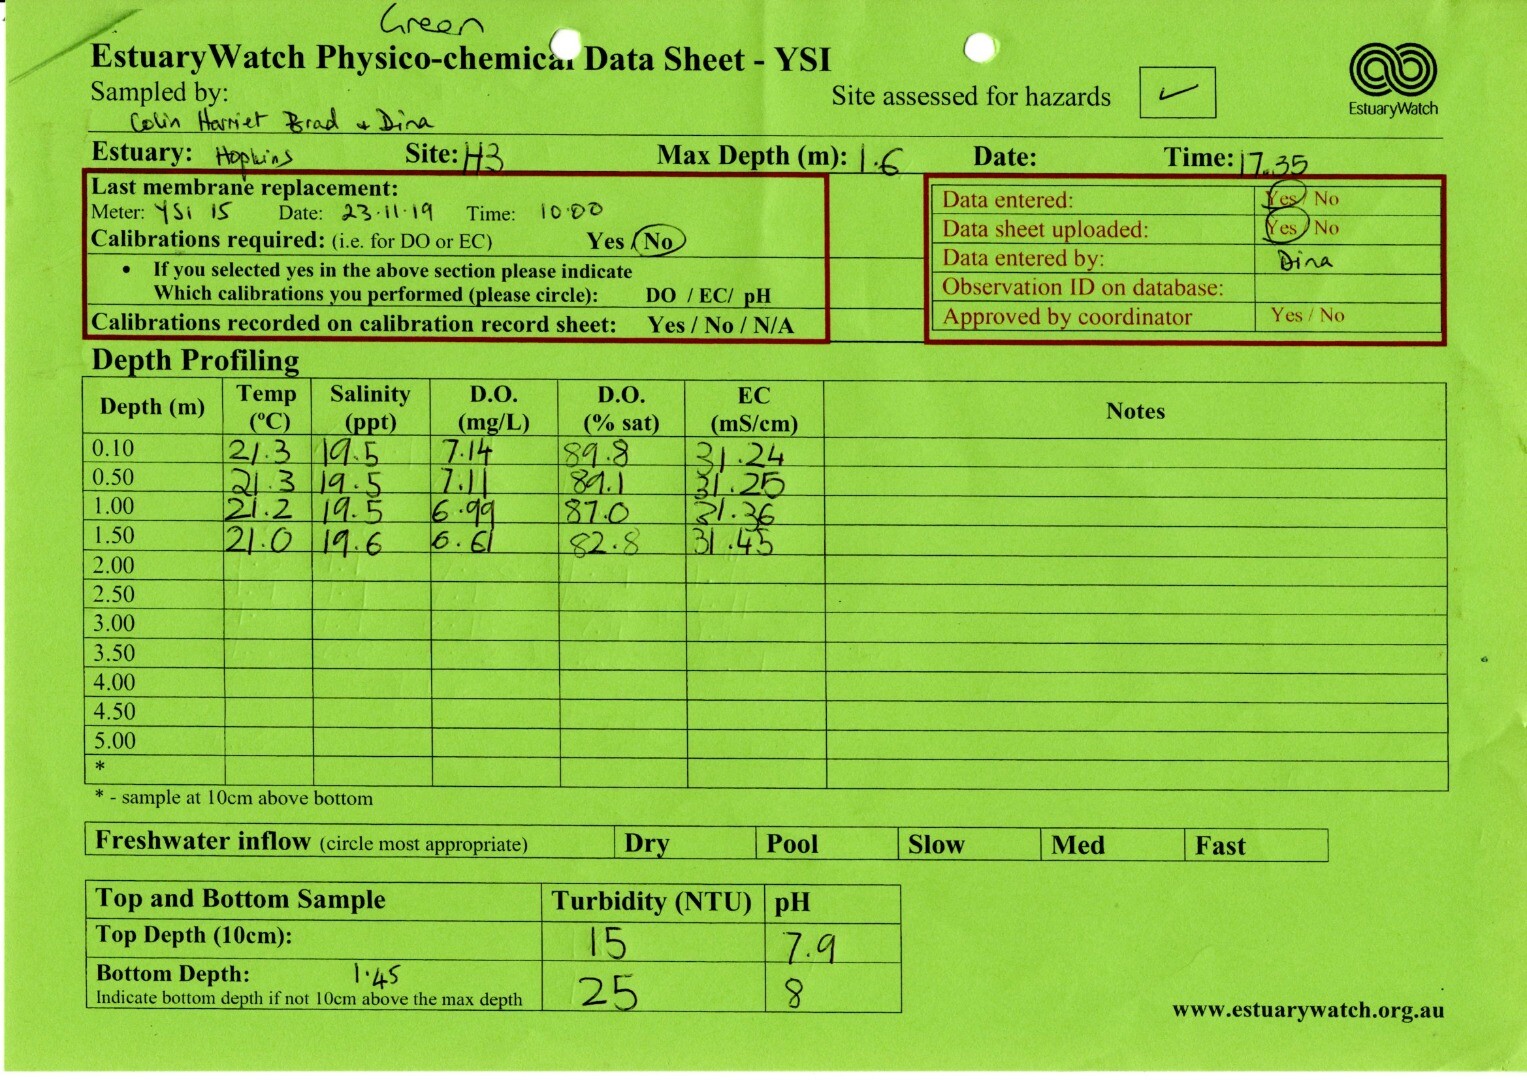 Green
EstuaryWatch Physico-chemical Data Sheet - YSI
Sampled by:
Colin Harriet Brad + Dina
Site assessed for hazards ✓
EstuaryWatch
Estuary: Hopkins Site: H3 Max Depth (m): 1.6 Date: Time: 17.35
Last membrane replacement:
Meter: YSi 15 Date: 23.11.19 Time: 10:00
Calibrations required: (i.e. for DO or EC) Yes / No
• If you selected yes in the above section please indicate
Which calibrations you performed (please circle): DO / EC/ pH
Calibrations recorded on calibration record sheet: Yes / No / N/A
Data entered: Yes / No
Data sheet uploaded: Yes / No
Data entered by: Dina
Observation ID on database:
Approved by coordinator Yes / No
Depth Profiling
Depth (m) Temp (ºC) Salinity (ppt) D.O. (mg/L) D.O. (% sat) EC (mS/cm) Notes
0.10 21.3 19.5 7.14 89.8 31.24
0.50 21.3 19.5 7.11 89.1 31.25
1.00 21.2 19.5 6.99 87.0 31.36
1.50 21.0 19.6 6.61 82.8 31.45
2.00
2.50
3.00
3.50
4.00
4.50
5.00
*
* - sample at 10cm above bottom
Freshwater inflow (circle most appropriate) Dry Pool Slow Med Fast
Top and Bottom Sample Turbidity (NTU) pH
Top Depth (10cm): 15 7.9
Bottom Depth: 1.45 25 8
Indicate bottom depth if not 10cm above the max depth
www.estuarywatch.org.au